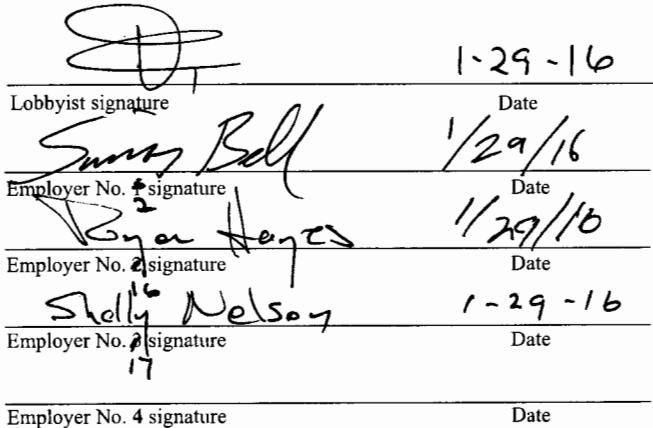 1-29-16
Lobbyist signature Date
Bell 1/29/16
Employer No. 1 signature Date
2
Hayes 1/29/16
Employer No. 2 signature Date
16
Shelly Nelson 1-29-16
Employer No. 3 signature Date
17
Employer No. 4 signature Date